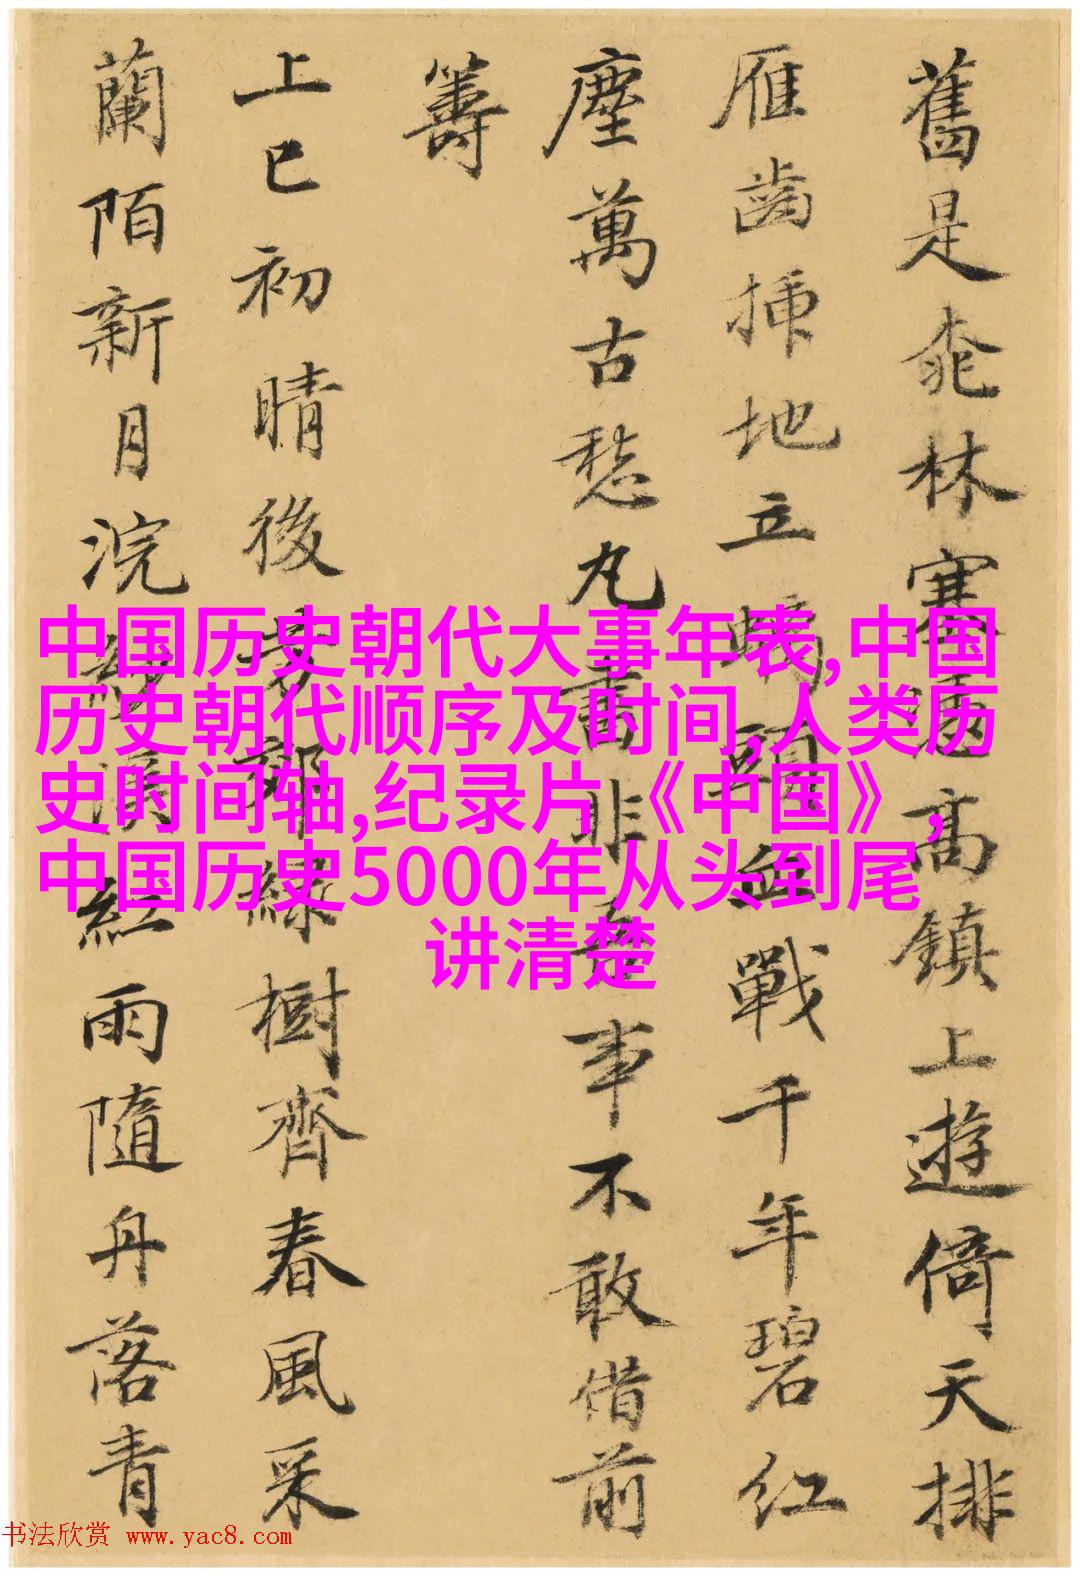 舊是桃林高鎮上遊倚天排
雁齒插地立螭頭血戰千年碧紅
塵萬古愁丸非吾事不敢借前
籌
上巳初晴後郊綠樹齊春風采
蘭陌新月浣紗溪紅雨隨舟落青
中国历史朝代大事年表,中国
历史朝代顺序及时间,人类历
史时间轴,纪录片《中国》,
中国历史5000年从头到尾
讲清楚
书法欣赏 www.yac8.com